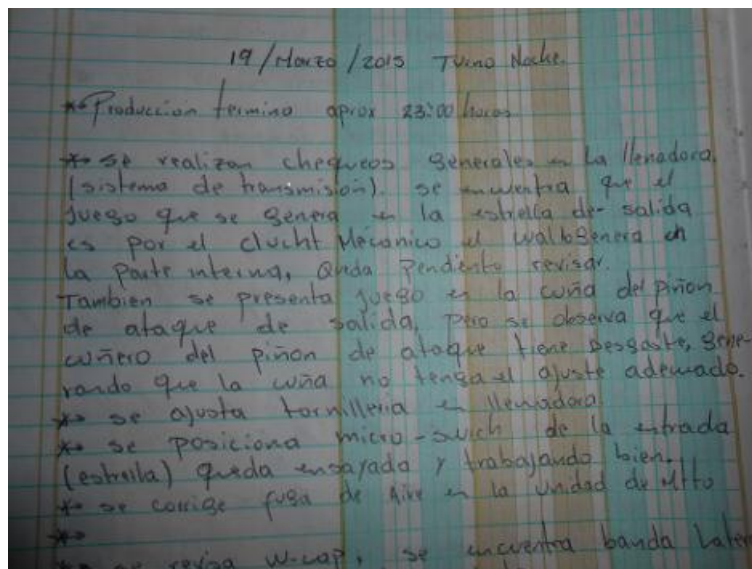 19/Marzo/2015 Turno Noche.
** Produccion termino aprox 23:00 horas
** se realizan chequeos generales en La llenadora.
(sistema de transmisión). se encuentra que el
juego que se genera en la estrella de salida
es por el clucht Mecanico el genera en
la parte interna, Queda Pendiente revisar.
Tambien se presenta juego en la cuña del piñon
de ataque de salida, pero se observa que el
cuñero del piñon de ataque tiene Desgaste, gene-
rando que la cuña no tenga el ajuste adecuado.
** se ajusta tornilleria en llenadora
** se posiciona micro-swich de la entrada
(estrella) queda ensayada y trabajando bien.
** se corrige fuga de Aire en la unidad de Mtto
**
** se revisa W-cap, se encuentra banda Later